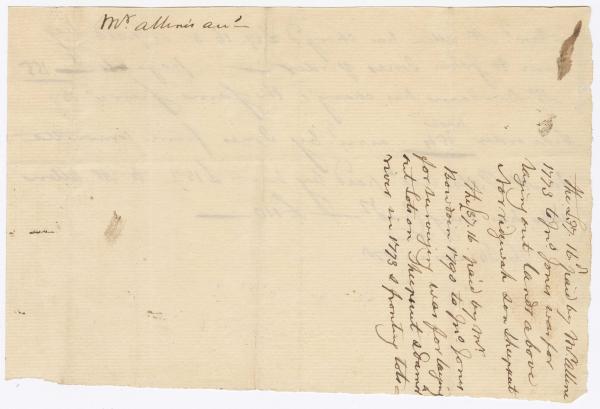 Mr Allen's acct
The £37.16 paid by Mr Allens
1773 to Jno Jones was for
laying out lands above
Norridgwak & on Sheepscut
The £37.16 paid by Mr
Bowdoin 1790 to Jno Jones
for surveying was for laying
out lots on Sheepscut & damd
river in 1773 & fronting lots